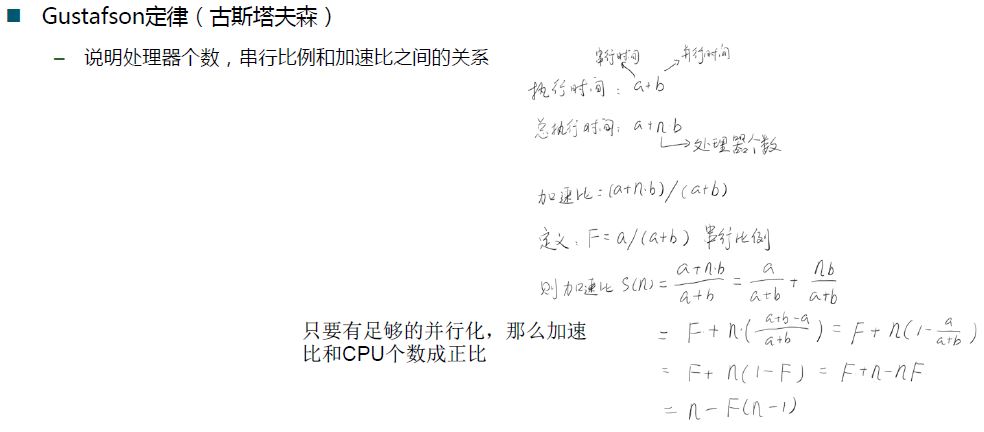 Gustafson定律（古斯塔夫森）
– 说明处理器个数，串行比例和加速比之间的关系
串行时间 并行时间
执行时间：a+b
总执行时间：a+n b
处理器个数
加速比=(a+n·b)/(a+b)
定义：F=a/(a+b) 串行比例
则加速比 S(n)=\frac{a+n·b}{a+b}=\frac{a}{a+b}+\frac{nb}{a+b}
=F+n·(\frac{a+b-a}{a+b})=F+n(1-\frac{a}{a+b})
=F+n(1-F)=F+n-nF
=n-F(n-1)
只要有足够的并行化，那么加速
比和CPU个数成正比